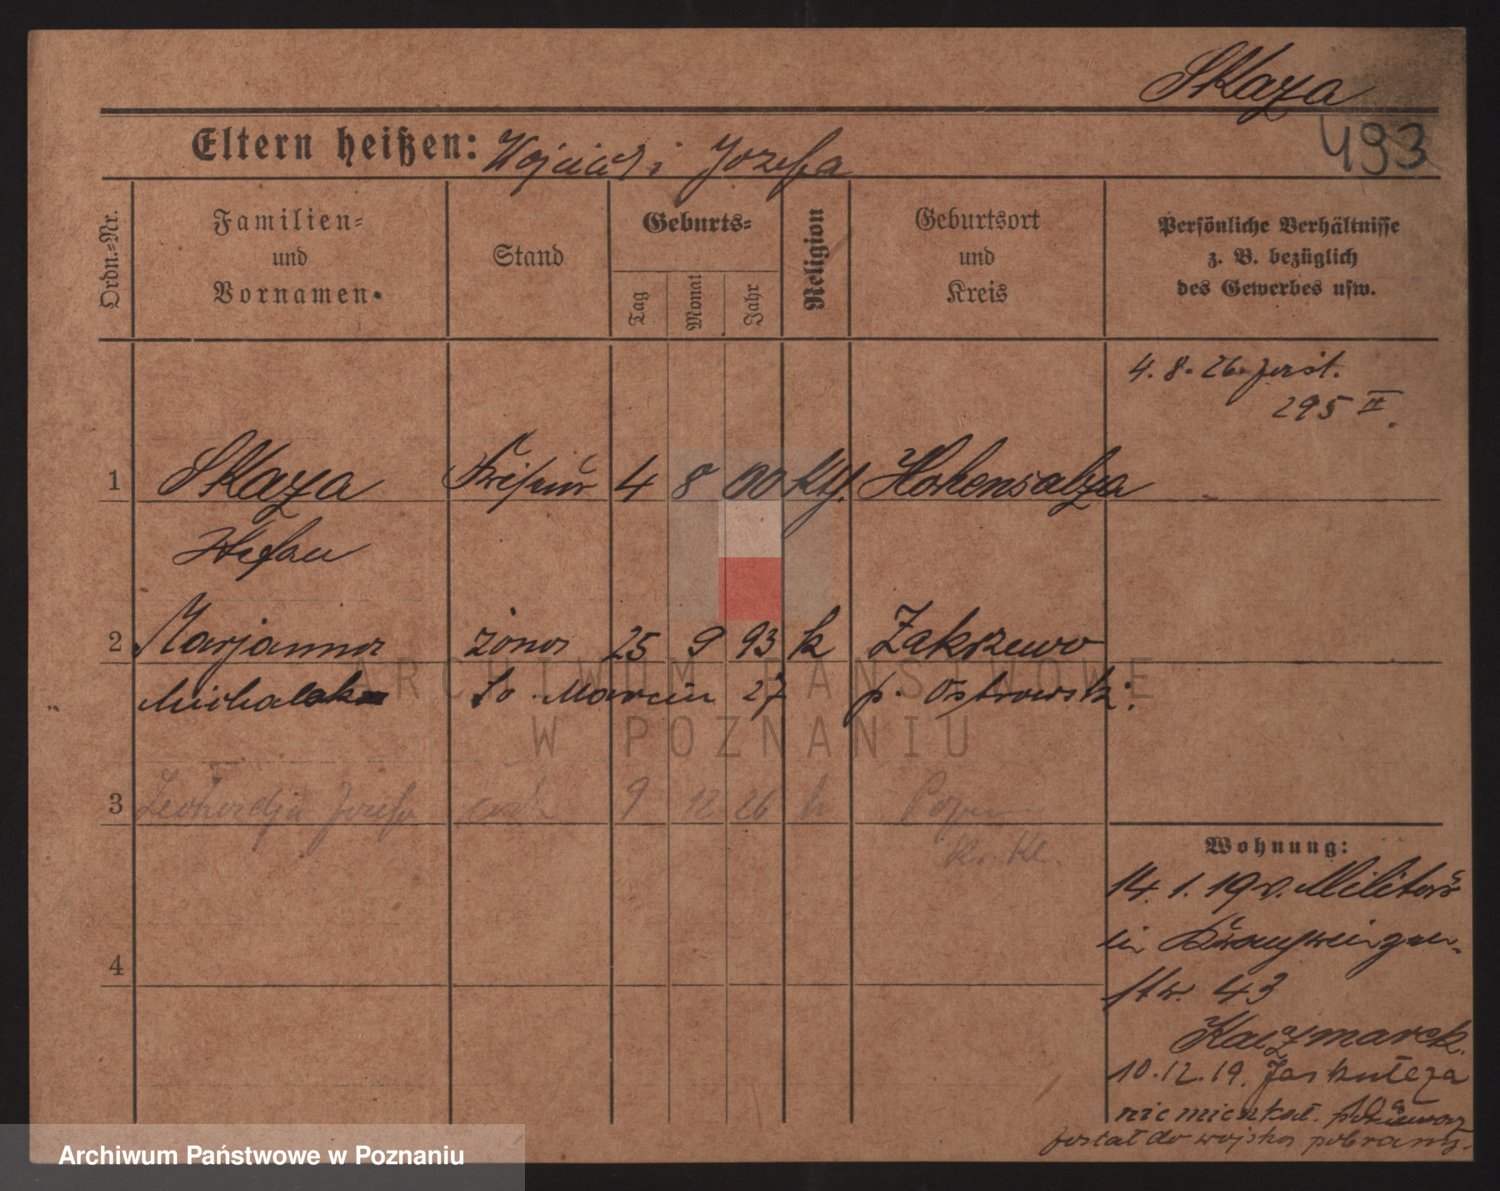 Skaza
493
Eltern heißen: Wojciech i Jozefa
Ordn.-Nr.
Familien-
und
Vornamen.
Stand
Geburts-
Tag
Monat
Jahr
Religion
Geburtsort
und
Kreis
Persönliche Verhältnisse
z. B. bezüglich
des Gewerbes usw.
4. 8. 26
295 II.
1 Skaza Friseur 4 8 00 kth. Hohensalza
Stefan
2 Marjanna żona 25 9 93 k Zakrzewo
Michalak 27 p. Ostrowski
3 Jozefa 9 12 26 k
4
Wohnung:
14. 1. 19 v. Militär
in
str. 43
Kaczmarek
10.12.19.
nie mieszkał.
został do wojska pobrany.
ARCHIWUM PAŃSTWOWE
W POZNANIU
Archiwum Państwowe w Poznaniu